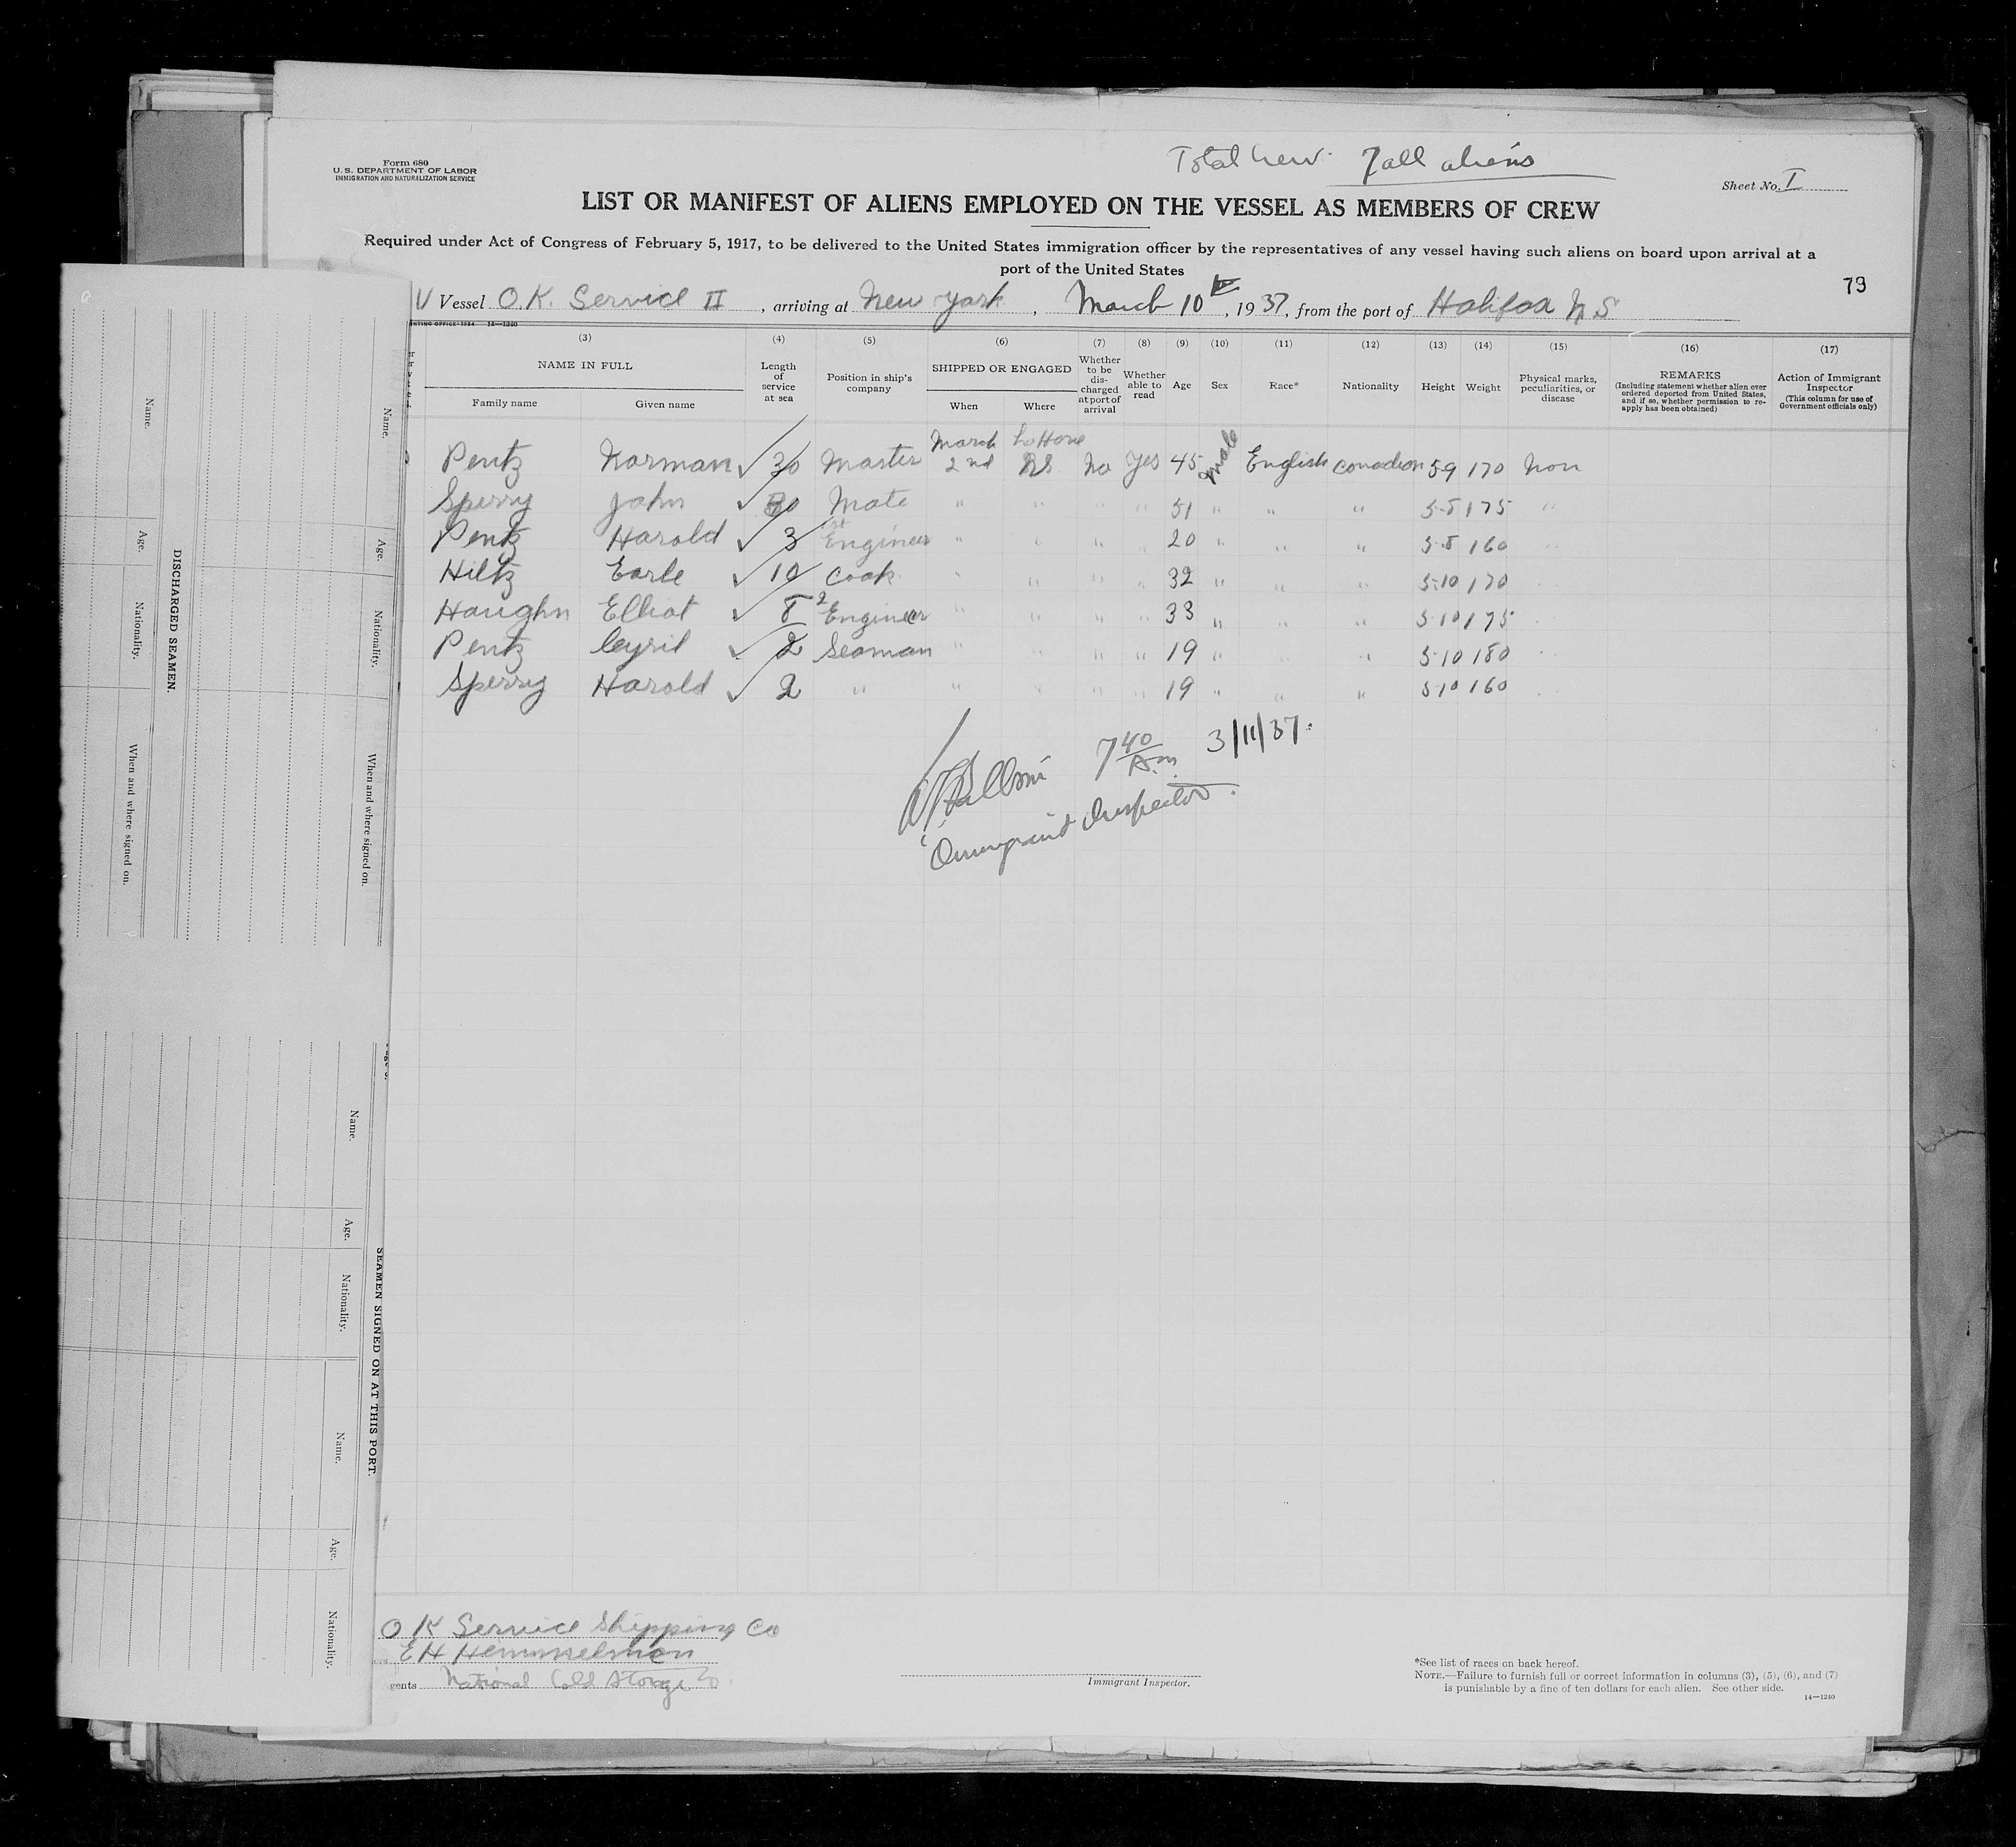 Form 680
U.S. DEPARTMENT OF LABOR
IMMIGRATION AND NATURALIZATION SERVICE
Total Crew. 7 all aliens
Sheet No. I
LIST OR MANIFEST OF ALIENS EMPLOYED ON THE VESSEL AS MEMBERS OF CREW
Required under Act of Congress of February 5, 1917, to be delivered to the United States immigration officer by the representatives of any vessel having such aliens on board upon arrival at a
port of the United States
79
Vessel O.K. Service II, arriving at New York, March 10th, 1937, from the port of Halifax N S
(3) (4) (5) (6) (7) (8) (9) (10) (11) (12) (13) (14) (15) (16) (17)
NAME IN FULL
Family name
Given name
Length of service at sea
Position in ship's company
SHIPPED OR ENGAGED
When
Where
Whether to be discharged at port of arrival
Whether able to read
Age
Sex
Race*
Nationality
Height
Weight
Physical marks, peculiarities, or disease
REMARKS
(Including statement whether alien ever ordered deported from United States, and if so, whether permission to re-apply has been obtained)
Action of Immigrant Inspector
(This column for use of Government officials only)
Pentz Norman 30 Master March 2nd LaHave NS No Yes 45 male English Canadian 5-9 170 Non
Sperry John 30 Mate " " " " 51 " " " 5-8 175 "
Pentz Harold 3 1st Engineer " " " " 20 " " " 5-8 160 "
Hiltz Earle 10 Cook " " " " 32 " " " 5-10 170
Haughn Elliot 8 2 Engineer " " " " 33 " " " 5-10 175
Pentz Cyril 2 Seaman " " " " 19 " " " 5-10 180
Sperry Harold 2 " " " " " 19 " " " 5-10 160
7 40 A.m. 3/11/37.
Immigrant Inspector.
O K Service Shipping Co
E H Himmelman
gents National Cold Storage Co.
Immigrant Inspector.
*See list of races on back hereof.
NOTE.—Failure to furnish full or correct information in columns (3), (5), (6), and (7)
is punishable by a fine of ten dollars for each alien. See other side.
14—1240
DISCHARGED SEAMEN.
Name.
Age.
Nationality.
When and where signed on.
Name.
Age.
Nationality.
When and where signed on.
SEAMEN SIGNED ON AT THIS PORT.
Name.
Age.
Nationality.
Name.
Age.
Nationality.